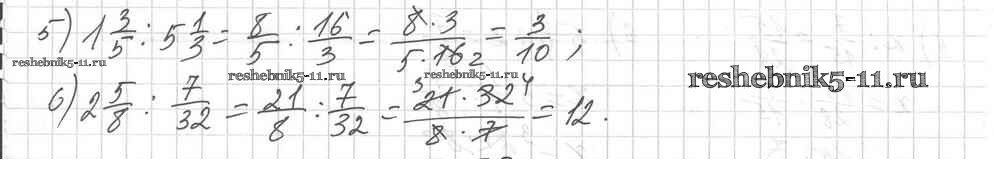 5) 1 3/5 : 5 1/3 = 8/5 : 16/3 = 8·3/5·16 2 = 3/10 ;
reshebnik5-11.ru reshebnik5-11.ru reshebnik5-11.ru reshebnik5-11.ru
6) 2 5/8 : 7/32 = 21/8 : 7/32 = 3 21·32 4/8·7 = 12.